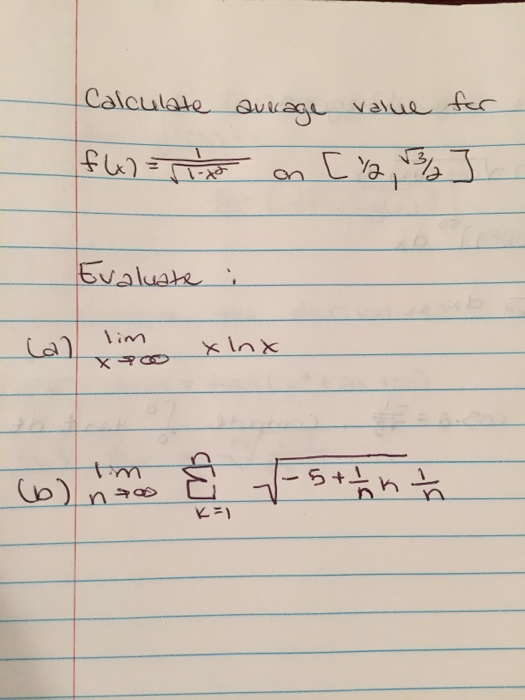 Calculate average value for
f(x) = 1/√(1-x²) on [1/2, √3/2]
Evaluate :
(a) lim x→∞ x ln x
(b) lim n→∞ Σ k=1 n √(-5+1/n k) 1/n